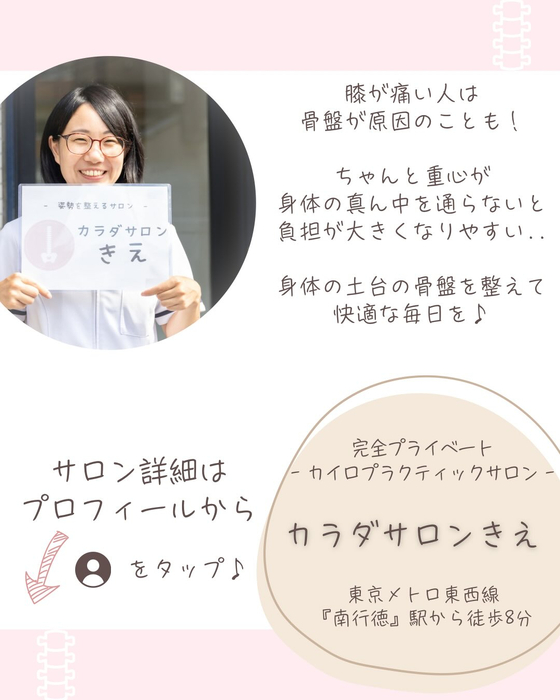 膝が痛い人は
骨盤が原因のことも！
ちゃんと重心が
身体の真ん中を通らないと
負担が大きくなりやすい..
身体の土台の骨盤を整えて
快適な毎日を♪
- 姿勢を整えるサロン -
カラダサロン
きえ
サロン詳細は
プロフィールから
をタップ♪
完全プライベート
- カイロプラクティックサロン -
カラダサロンきえ
東京メトロ東西線
『南行徳』駅から徒歩8分